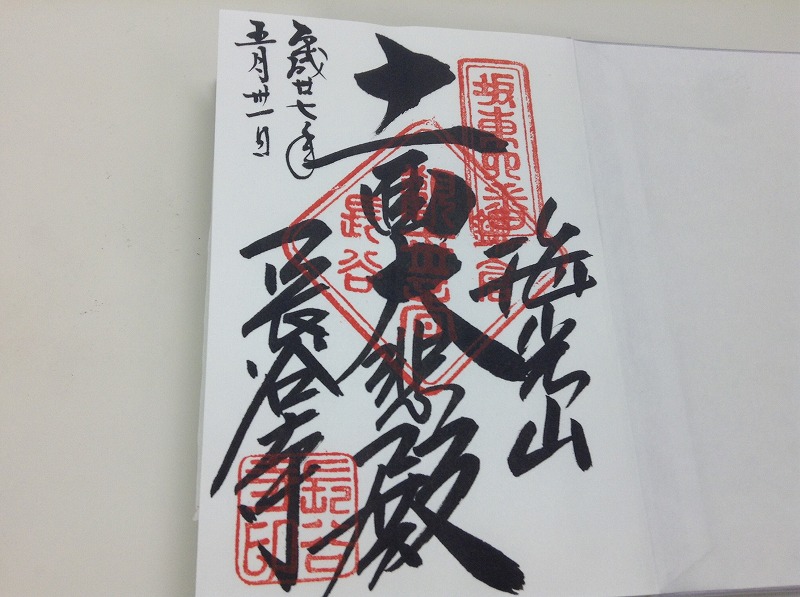 坂東四番
海光山
十一面大悲殿
鎌倉
観世音
長谷
平成廿七年
五月卅一日
長谷寺
長谷
寺印